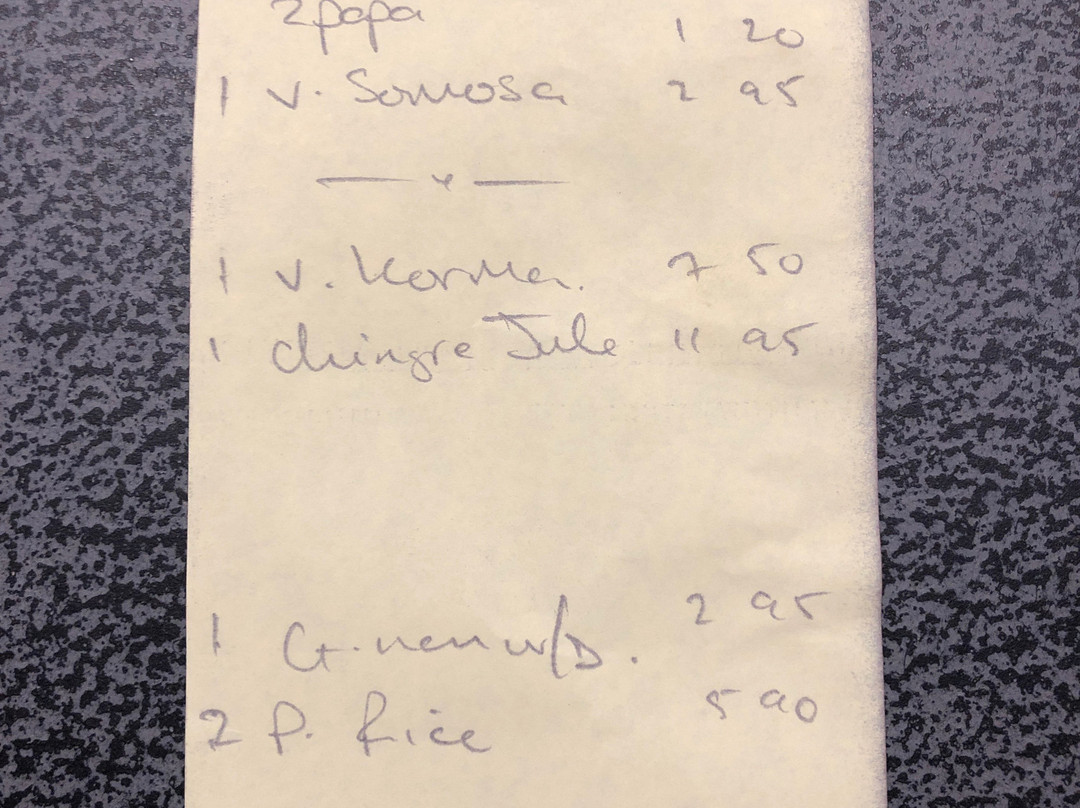 2 papa 1 20
1 v. Somosa 2 95
1 v. Korma. 7 50
1 chingre Jule 11 95
1 G. nan w/D. 2 95
2 P. Rice 5 90